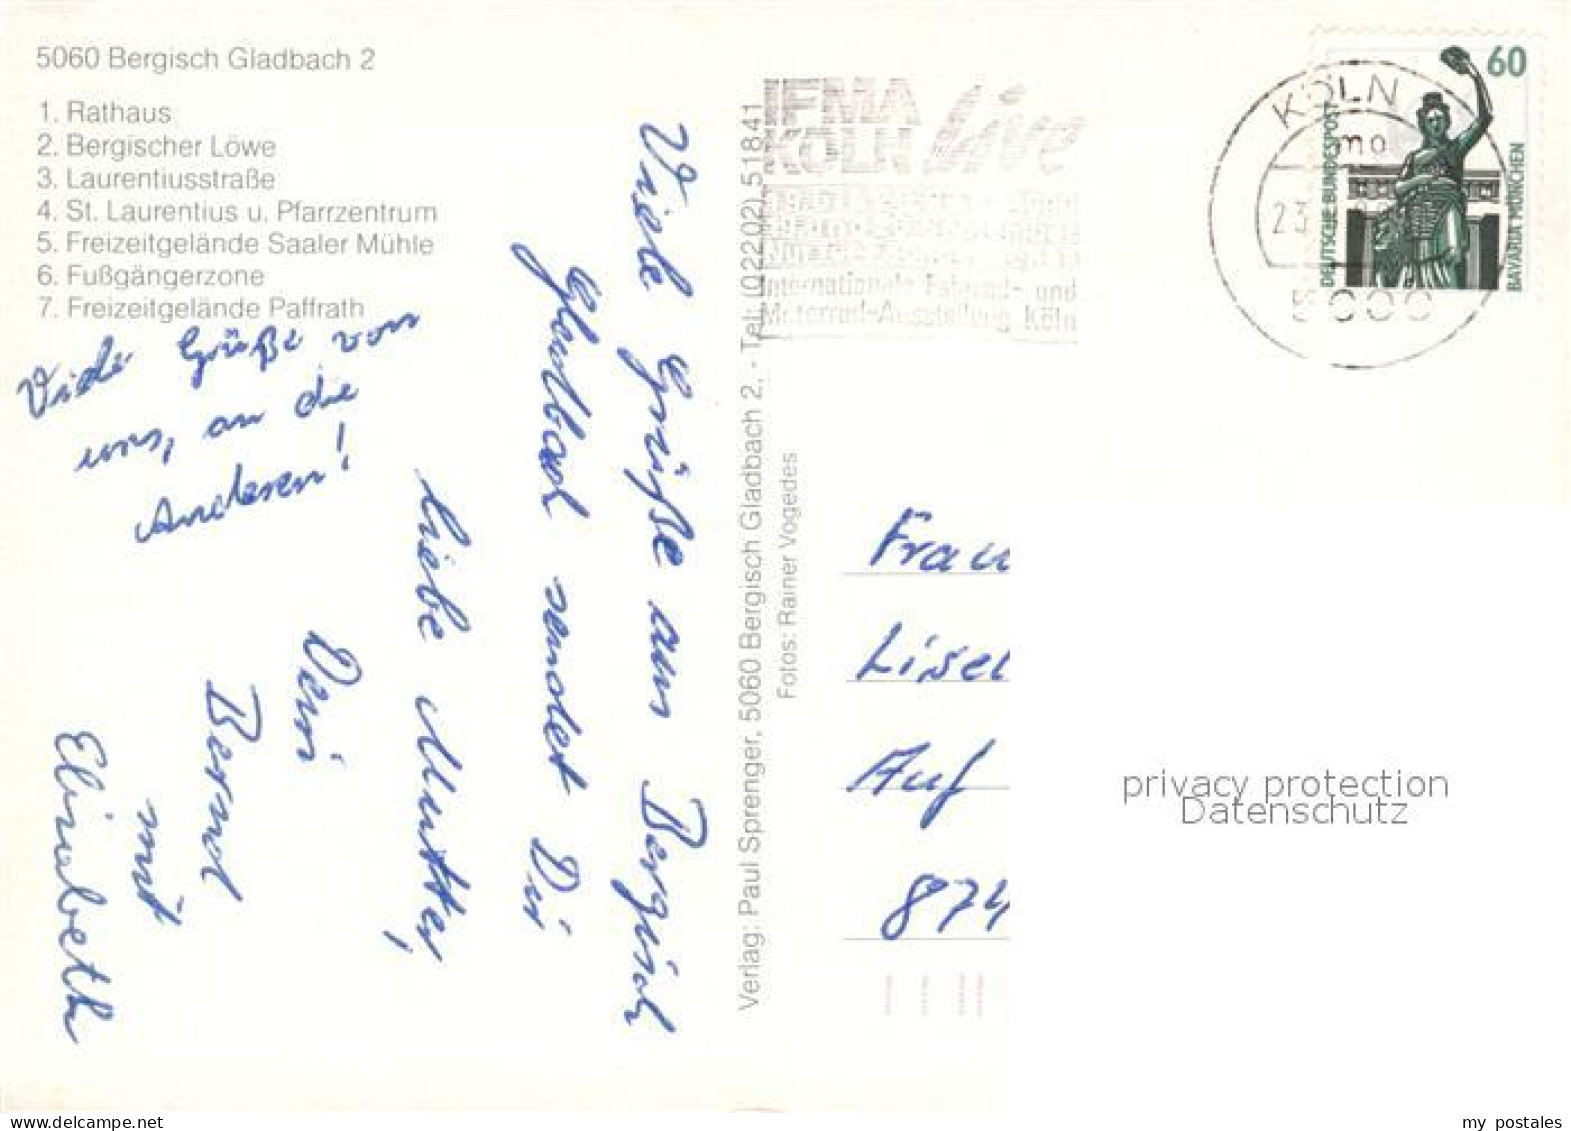 5060 Bergisch Gladbach 2
1. Rathaus
2. Bergischer Löwe
3. Laurentiusstraße
4. St. Laurentius u. Pfarrzentrum
5. Freizeitgelände Saaler Mühle
6. Fußgängerzone
7. Freizeitgelände Paffrath
Viele Grüße von
uns, an die
Anderen!
Viele Grüße aus Bergisch
Gladbach sendet Dir
liebe Mutter,
Dein
Bernd
mit
Elisabeth
Verlag: Paul Sprenger, 5060 Bergisch Gladbach 2, - Tel. (02202) 51841
Fotos: Rainer Vogedes
IFMA
KÖLN Live
Internationale Fahrrad- und
Motorrad-Ausstellung Köln
KÖLN
mo
23
5000
60
DEUTSCHE BUNDESPOST
BAVARIA MÜNCHEN
Frau
Lisel
Auf
874
privacy protection
Datenschutz
my postales